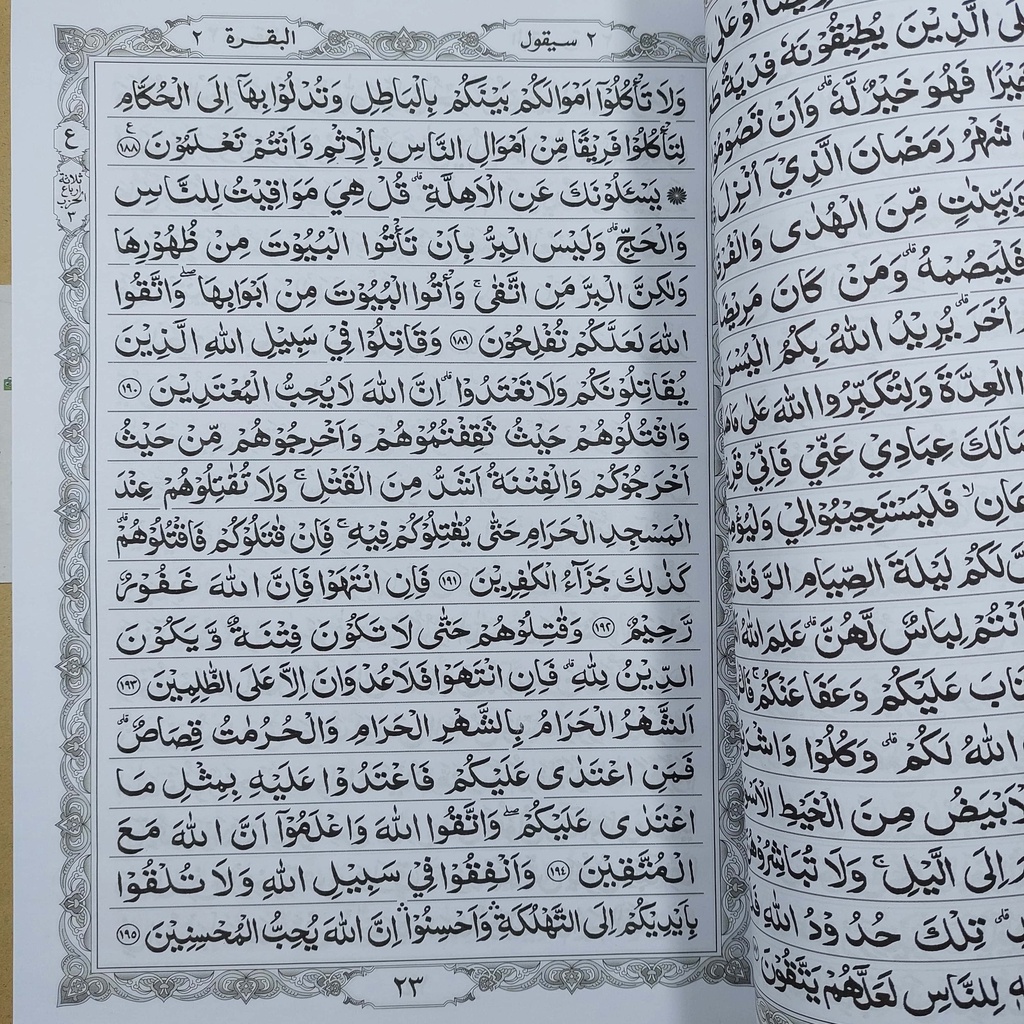 ٢ سيقول
البقرة ٢
وَلَا تَأْكُلُوْٓا اَمْوَالَكُمْ بَيْنَكُمْ بِالْبَاطِلِ وَتُدْلُوْا بِهَآ اِلَى الْحُكَّامِ
لِتَأْكُلُوْا فَرِيْقًا مِّنْ اَمْوَالِ النَّاسِ بِالْاِثْمِ وَاَنْتُمْ تَعْلَمُوْنَ ۝١٨٨ ع
۞ يَسْـَٔلُوْنَكَ عَنِ الْاَهِلَّةِ ۗ قُلْ هِيَ مَوَاقِيْتُ لِلنَّاسِ
وَالْحَجِّ ۗ وَلَيْسَ الْبِرُّ بِاَنْ تَأْتُوا الْبُيُوْتَ مِنْ ظُهُوْرِهَا
وَلٰكِنَّ الْبِرَّ مَنِ اتَّقٰى ۚ وَأْتُوا الْبُيُوْتَ مِنْ اَبْوَابِهَا ۖ وَاتَّقُوا
اللّٰهَ لَعَلَّكُمْ تُفْلِحُوْنَ ۝١٨٩ وَقَاتِلُوْا فِيْ سَبِيْلِ اللّٰهِ الَّذِيْنَ
يُقَاتِلُوْنَكُمْ وَلَا تَعْتَدُوْا ۗ اِنَّ اللّٰهَ لَا يُحِبُّ الْمُعْتَدِيْنَ ۝١٩٠
وَاقْتُلُوْهُمْ حَيْثُ ثَقِفْتُمُوْهُمْ وَاَخْرِجُوْهُمْ مِّنْ حَيْثُ
اَخْرَجُوْكُمْ وَالْفِتْنَةُ اَشَدُّ مِنَ الْقَتْلِ ۚ وَلَا تُقٰتِلُوْهُمْ عِنْدَ
الْمَسْجِدِ الْحَرَامِ حَتّٰى يُقٰتِلُوْكُمْ فِيْهِ ۚ فَاِنْ قٰتَلُوْكُمْ فَاقْتُلُوْهُمْ ۗ
كَذٰلِكَ جَزَآءُ الْكٰفِرِيْنَ ۝١٩١ فَاِنِ انْتَهَوْا فَاِنَّ اللّٰهَ غَفُوْرٌ
رَّحِيْمٌ ۝١٩٢ وَقٰتِلُوْهُمْ حَتّٰى لَا تَكُوْنَ فِتْنَةٌ وَّيَكُوْنَ
الدِّيْنُ لِلّٰهِ ۗ فَاِنِ انْتَهَوْا فَلَا عُدْوَانَ اِلَّا عَلَى الظّٰلِمِيْنَ ۝١٩٣
اَلشَّهْرُ الْحَرَامُ بِالشَّهْرِ الْحَرَامِ وَالْحُرُمٰتُ قِصَاصٌ ۗ
فَمَنِ اعْتَدٰى عَلَيْكُمْ فَاعْتَدُوْا عَلَيْهِ بِمِثْلِ مَا
اعْتَدٰى عَلَيْكُمْ ۖ وَاتَّقُوا اللّٰهَ وَاعْلَمُوْٓا اَنَّ اللّٰهَ مَعَ
الْمُتَّقِيْنَ ۝١٩٤ وَاَنْفِقُوْا فِيْ سَبِيْلِ اللّٰهِ وَلَا تُلْقُوْا
بِاَيْدِيْكُمْ اِلَى التَّهْلُكَةِ ۛ وَاَحْسِنُوْا ۛ اِنَّ اللّٰهَ يُحِبُّ الْمُحْسِنِيْنَ ۝١٩٥
٢٣
ع
ثلاثة
ارباع
الحزب
٣
الَّذِيْنَ يُطِيْقُوْنَهٗ فِدْيَةٌ
فَهُوَ خَيْرٌ لَّهٗ ۗ وَاَنْ
شَهْرُ رَمَضَانَ الَّذِيْٓ اُنْزِلَ
وَبَيِّنٰتٍ مِّنَ الْهُدٰى
فَلْيَصُمْهُ ۗ وَمَنْ كَانَ
اُخَرَ ۗ يُرِيْدُ اللّٰهُ بِكُمُ
الْعِدَّةَ وَلِتُكَبِّرُوا اللّٰهَ عَلٰى
عِبَادِيْ عَنِّيْ فَاِنِّيْ
فَلْيَسْتَجِيْبُوْا لِيْ
لَكُمْ لَيْلَةَ الصِّيَامِ الرَّفَثُ
لِبَاسٌ لَّهُنَّ ۗ عَلِمَ اللّٰهُ
عَلَيْكُمْ وَعَفَا عَنْكُمْ ۚ
اللّٰهُ لَكُمْ ۗ وَكُلُوْا
مِنَ الْخَيْطِ
اِلَى الَّيْلِ ۚ وَلَا
تِلْكَ حُدُوْدُ اللّٰهِ
لِلنَّاسِ لَعَلَّهُمْ يَتَّقُوْنَ